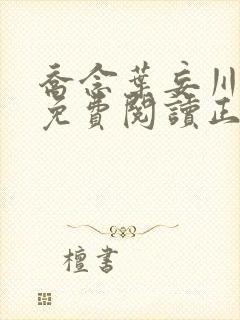 喬念葉妄川
免費閱讀正
檀書